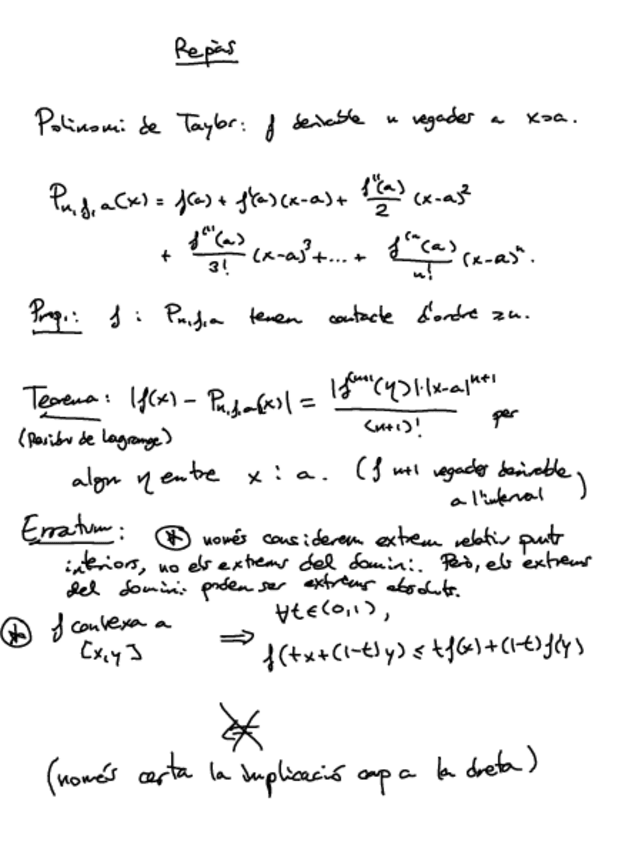 Repàs
Polinomi de Taylor: f derivable n vegades a x=a.
P_{n,f,a}(x) = f(a) + f'(a)(x-a) + \frac{f''(a)}{2}(x-a)^2
+ \frac{f'''(a)}{3!}(x-a)^3 + ... + \frac{f^{(n}(a)}{n!}(x-a)^n.
Prop.: f i P_{n,f,a} tenen contacte d'ordre ≥n.
Teorema: |f(x) - P_{n,f,a}(x)| = \frac{|f^{(n+1}(η)|·|x-a|^{n+1}}{(n+1)!} per
(Residu de Lagrange)
algun η entre x i a. (f n+1 vegades derivable
a l'interval)
Erratum: (*) només considerem extrem relatiu punts
interiors, no els extrems del domini. Però, els extrems
del domini poden ser extrems absoluts.
(*) f convexa a [x,y] ⟹ ∀t∈(0,1),
f(tx+(1-t)y) ≤ tf(x)+(1-t)f(y)
(només certa la implicació cap a la dreta)